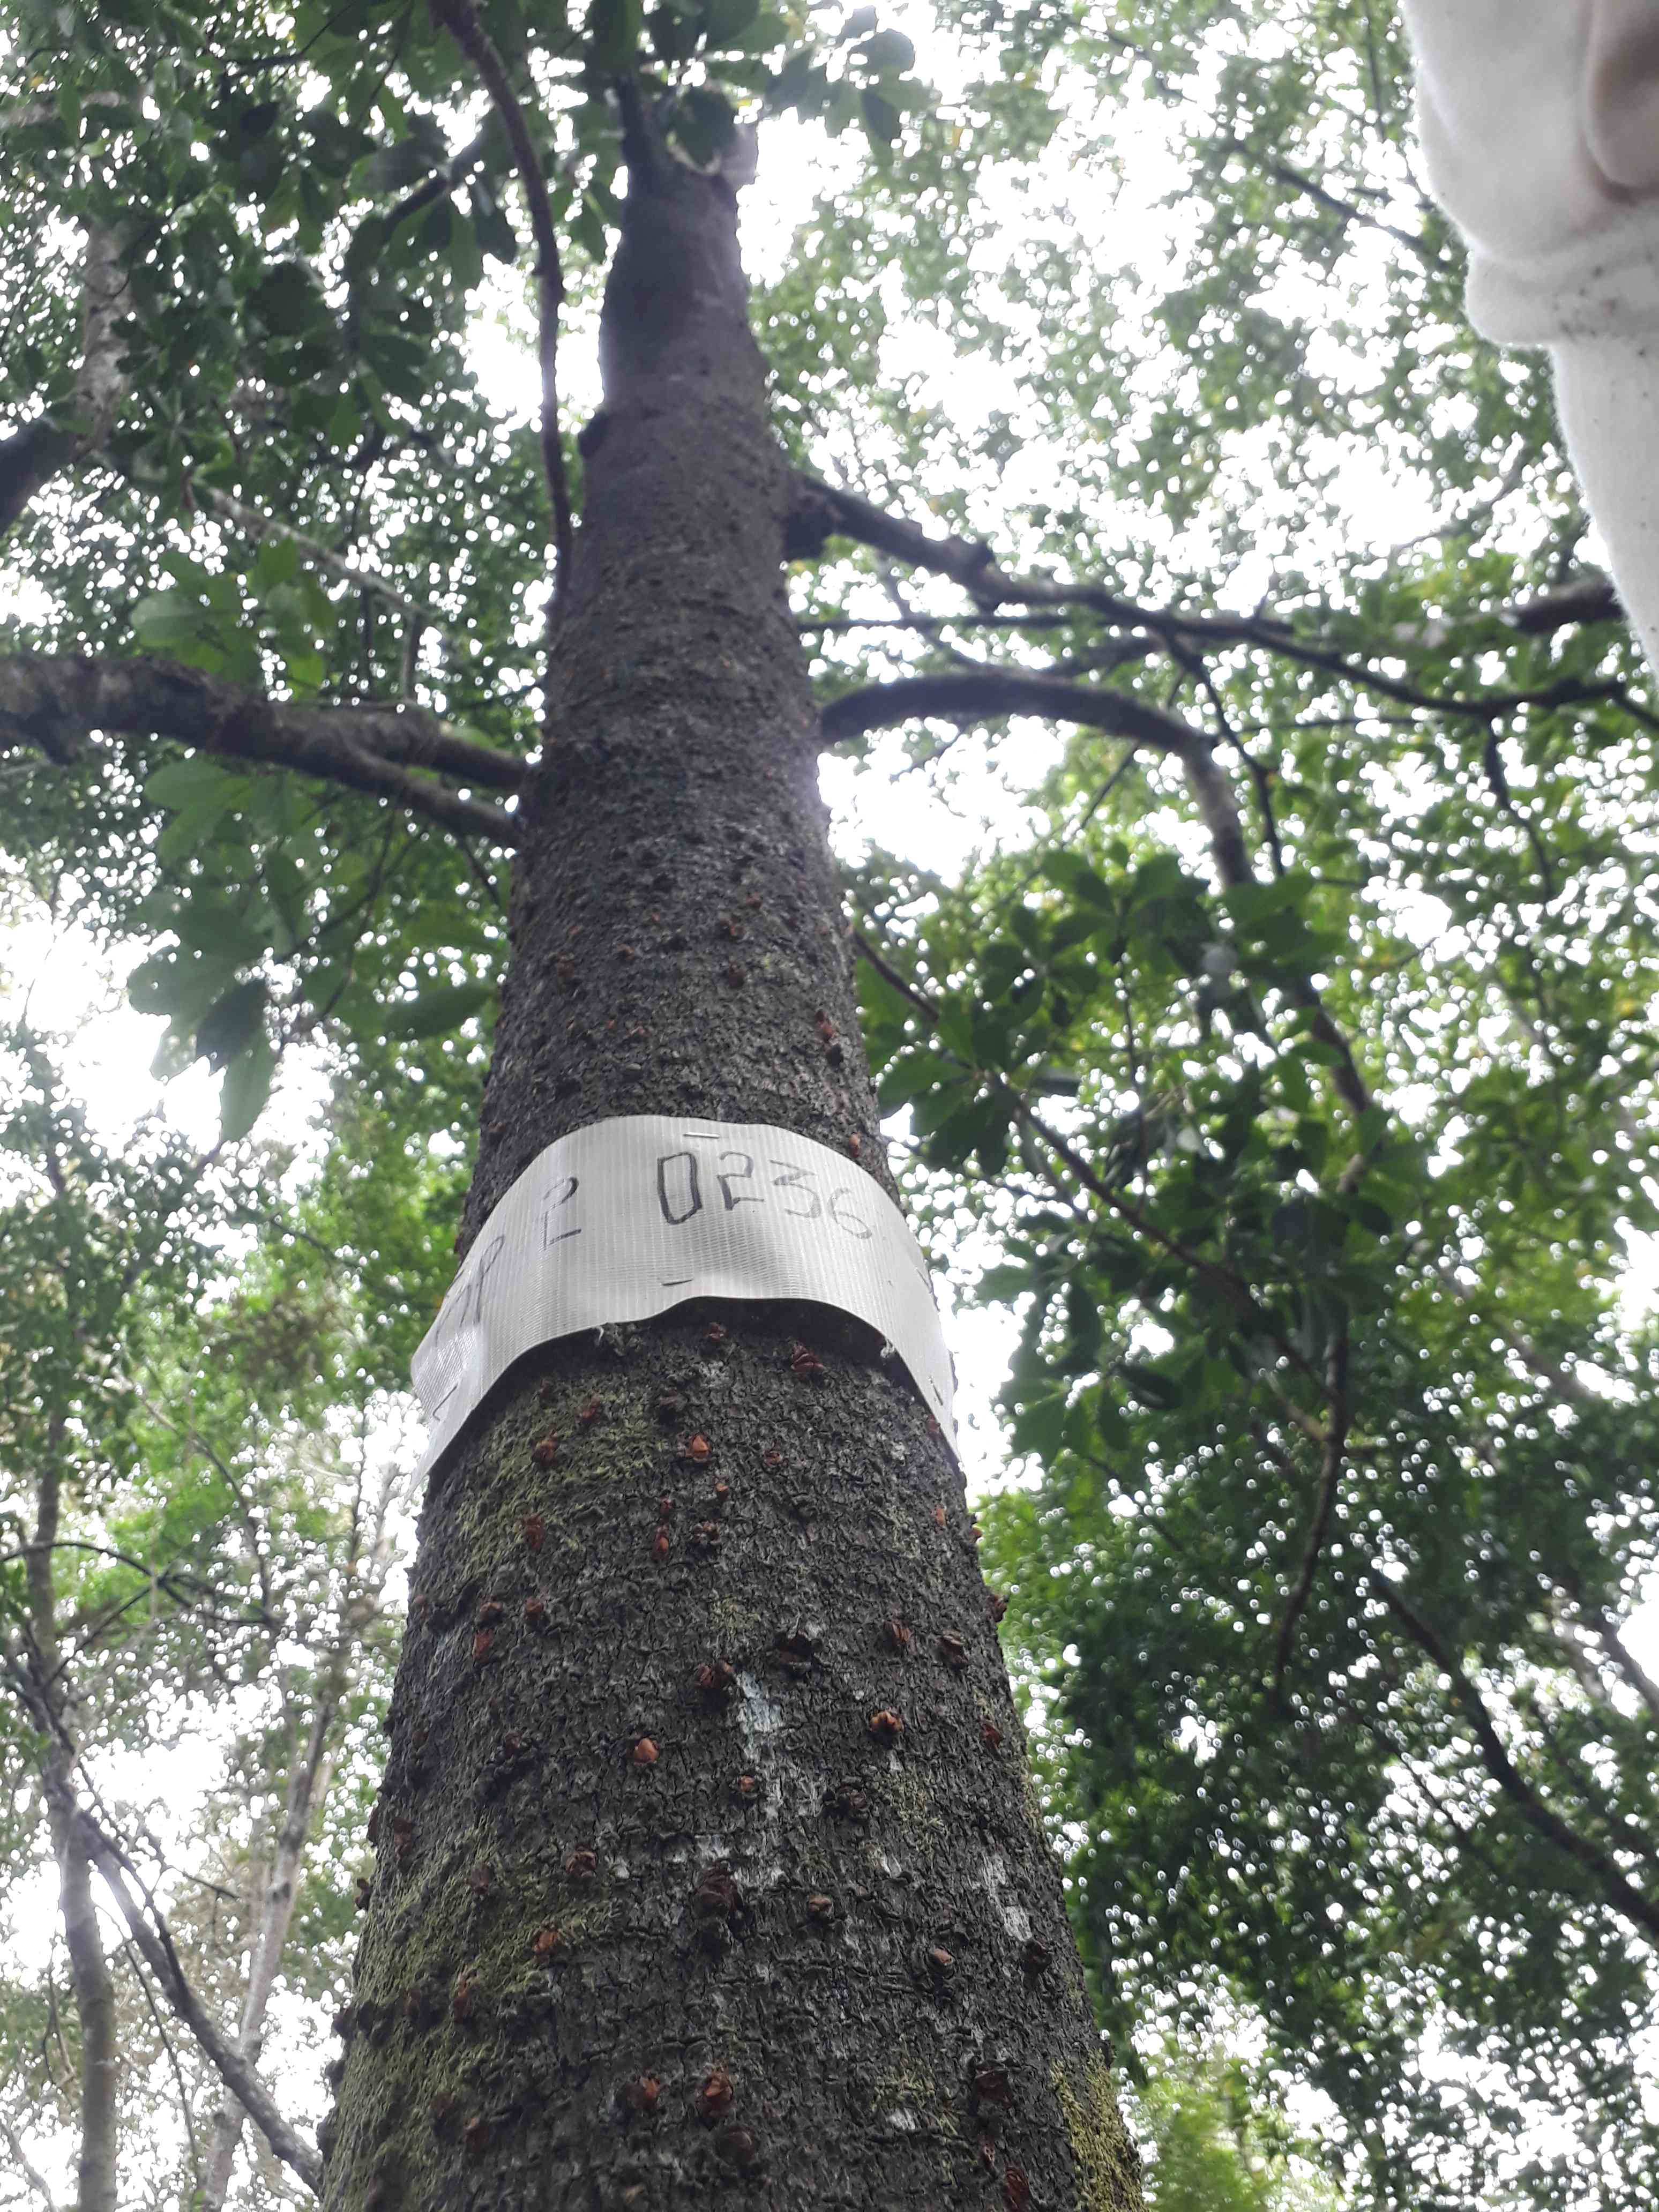 2 0236